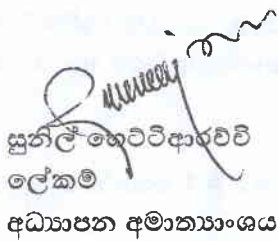 සුනිල් හෙට්ටිආරච්චි
ලේකම්
අධ්‍යාපන අමාත්‍යාංශය